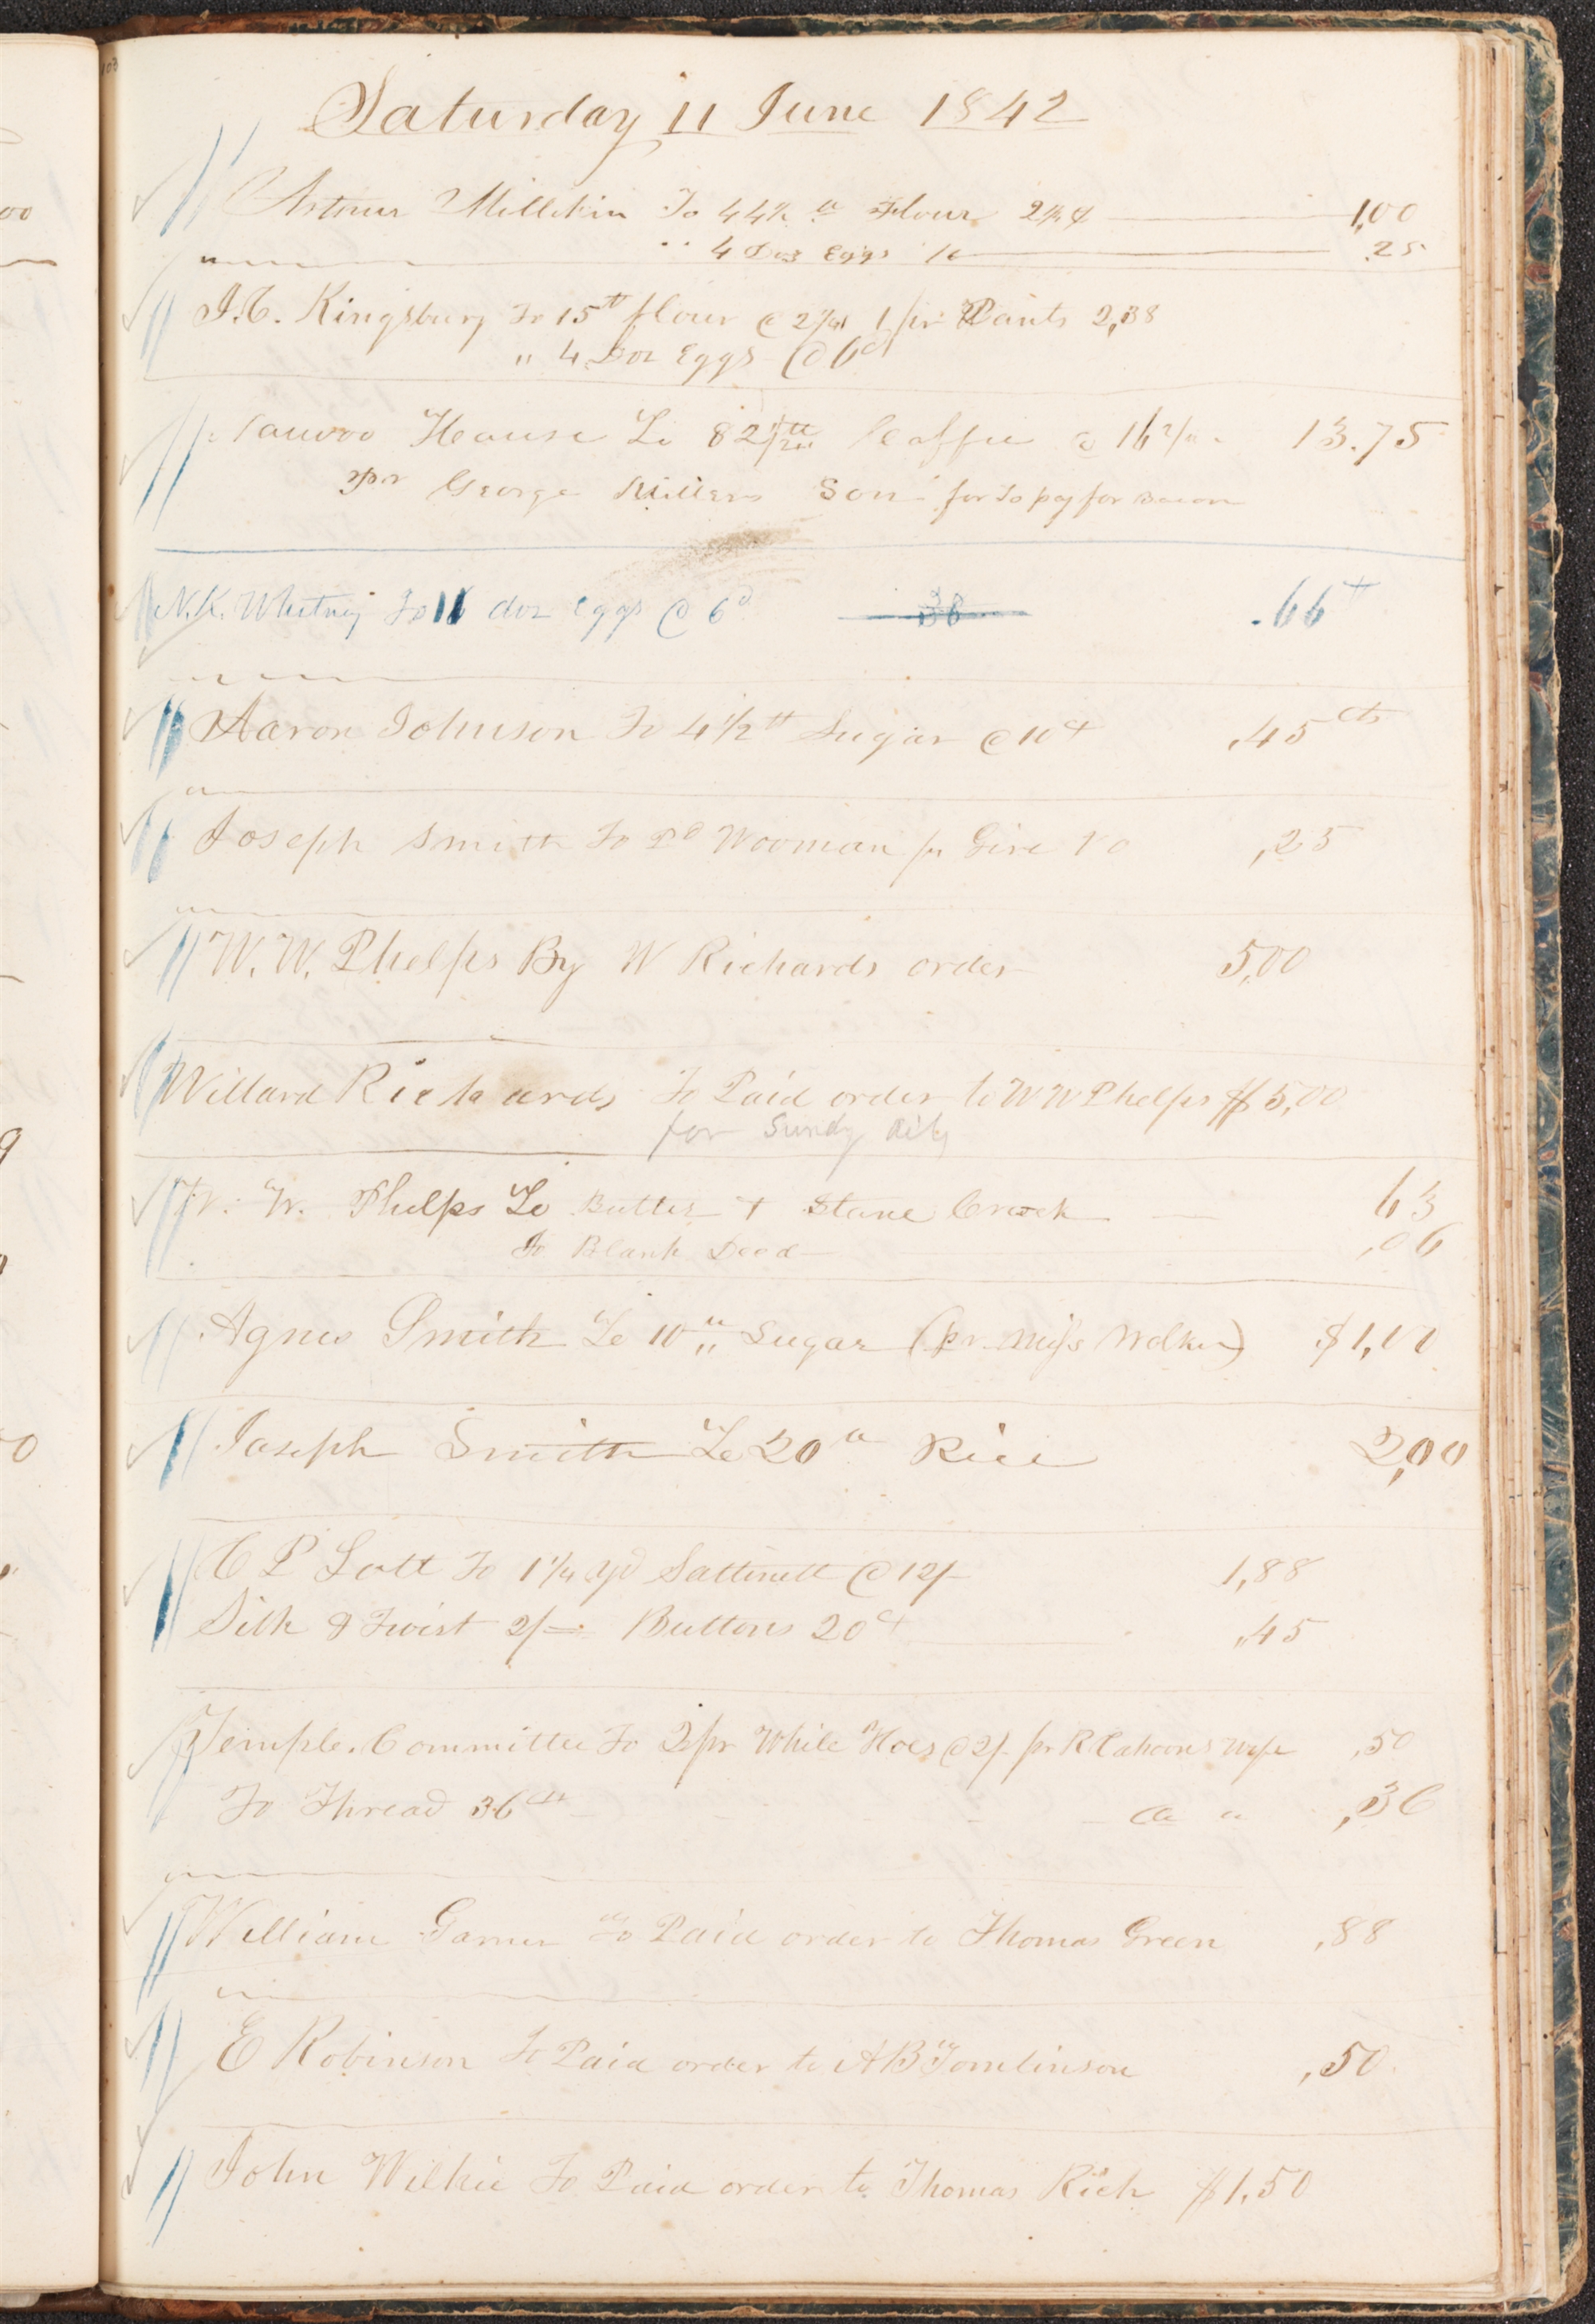 103
Saturday 11 June 1842
Arthur Millikin To 44½ " Flour 2¼ ¢ 1,00
" 4 Doz Eggs .25
J.C. Kingsbury To 15 tt flour @ 2¼ 1 pr Pants 2,38
" 4 Doz Eggs @ 6d
Nauvoo House To 82½ tt Coffee @ 16 2/3 13.75
pr George Millers Son for to pay for Bacon
N.K. Whitney To 11 doz eggs @ 6d 38 .66
Aaron Johnson To 4 1/2 tt Sugar @ 10¢ ,45 cts
Joseph Smith To Pd Wooman pr Give ,25
W. W. Phelps By W Richards order 5,00
Willard Richards To Paid order to W W Phelps $5,00
for Sundy
W. W. Phelps To Butter & Stone Crock 63
To Blank Deed ,06
Agnes Smith To 10 " Sugar (pr Miss Walker) $1,00
Joseph Smith To 20 " Rice 2,00
C P Lott To 1¼ yd Sattinett @ 12/- 1,88
Silk & Twist 2/= Buttons 20¢ ,45
Temple Committee To 2 pr While Hoes @ 2/- pr R Cahoons Wife ,50
To Thread 36 cts " " ,36
William Garner To Paid order to Thomas Green ,88
E Robinson To Paid order to A B Tomlinson ,50
John Wilkie To Paid order to Thomas Rich $1,50